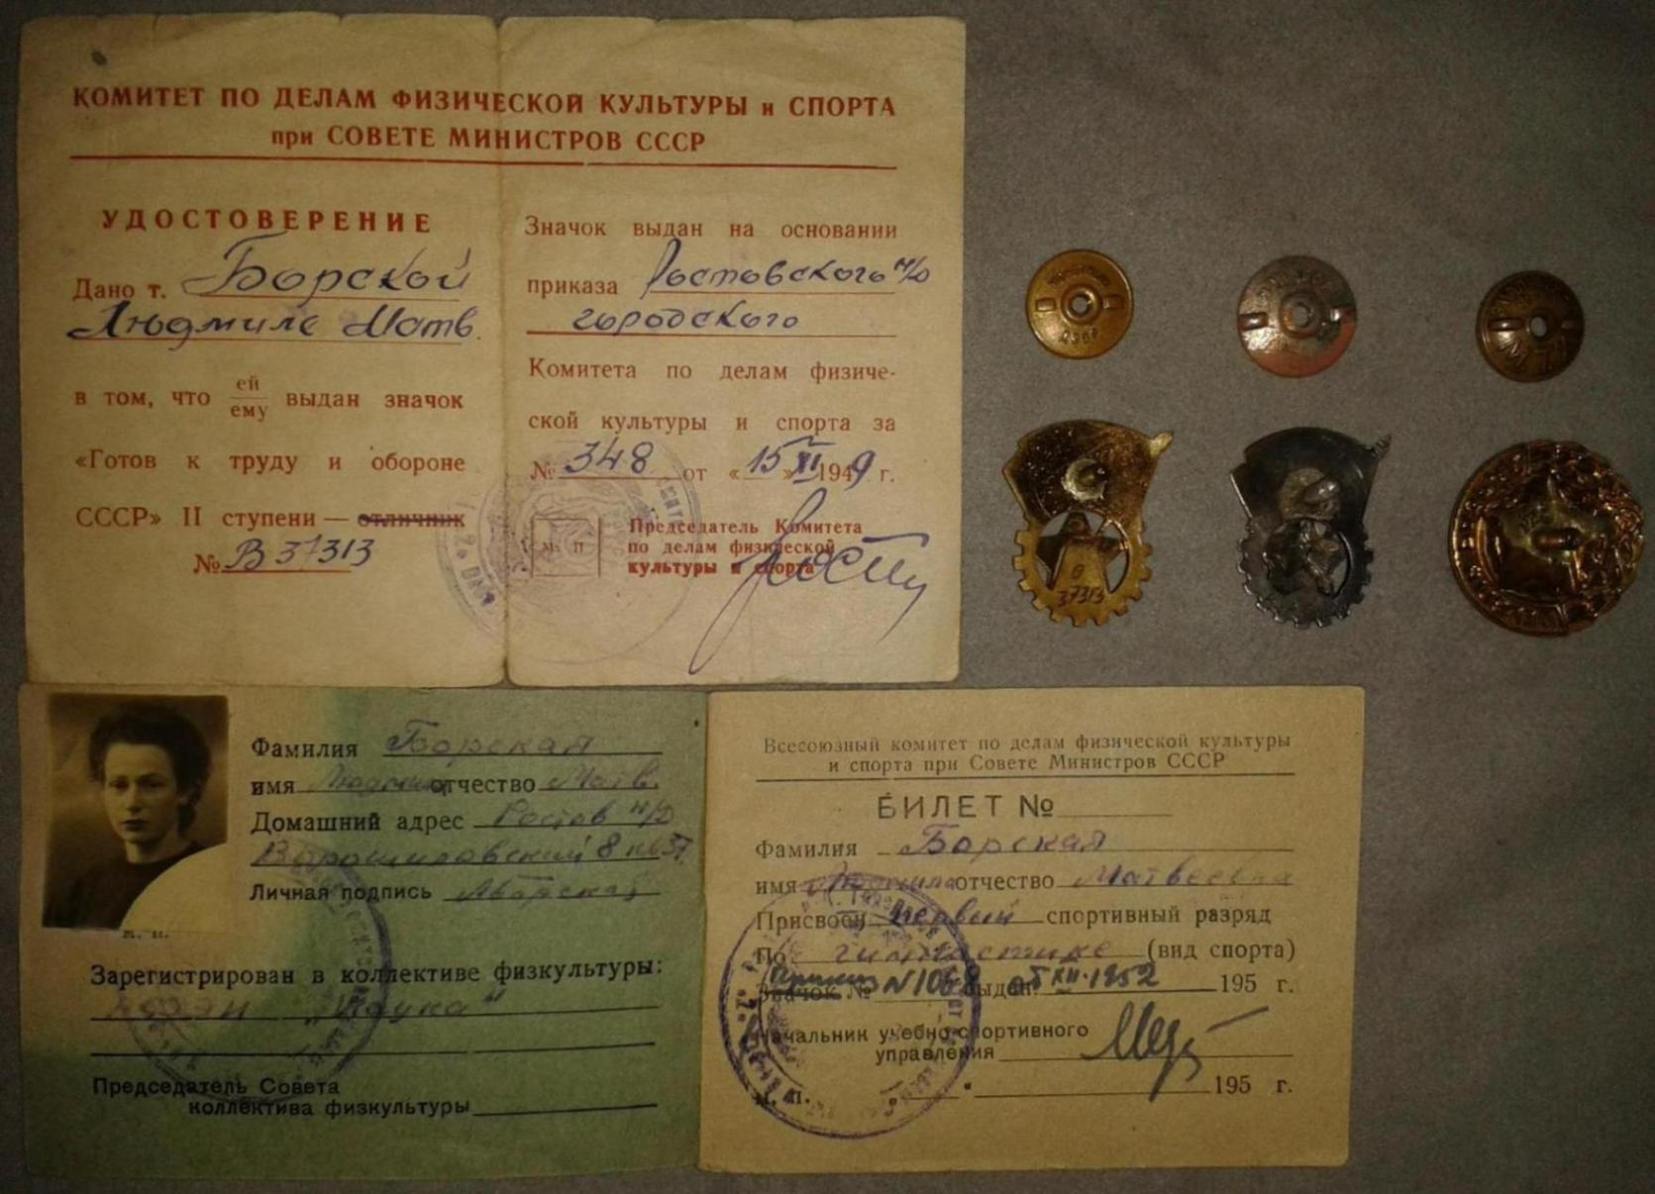 КОМИТЕТ ПО ДЕЛАМ ФИЗИЧЕСКОЙ КУЛЬТУРЫ и СПОРТА
при СОВЕТЕ МИНИСТРОВ СССР
УДОСТОВЕРЕНИЕ
Дано т. Борской
Людмиле Матв.
в том, что ей
ему выдан значок
«Готов к труду и обороне
СССР» II ступени — отличник
№ В 37313
Значок выдан на основании
приказа Ростовского н/Д
городского
Комитета по делам физиче-
ской культуры и спорта за
№ 348 от «15» XI 1949 г.
М П
Председатель Комитета
по делам физической
культуры и спорта
В
37313
Фамилия Борская
имя Людмила отчество Матв.
Домашний адрес Ростов н/Д
Ворошиловский 8 кв 37
Личная подпись ЛБорская
М. П.
Зарегистрирован в коллективе физкультуры:
"Наука"
Председатель Совета
коллектива физкультуры
Всесоюзный комитет по делам физической культуры
и спорта при Совете Министров СССР
БИЛЕТ №
Фамилия Борская
имя Людмила отчество Матвеевна
Присвоен первый спортивный разряд
По гимнастике (вид спорта)
Приказ N 106 от 5 XII-1952
Значок № выдан 195 г.
Начальник учебно-спортивного
управления
М. П. 195 г.